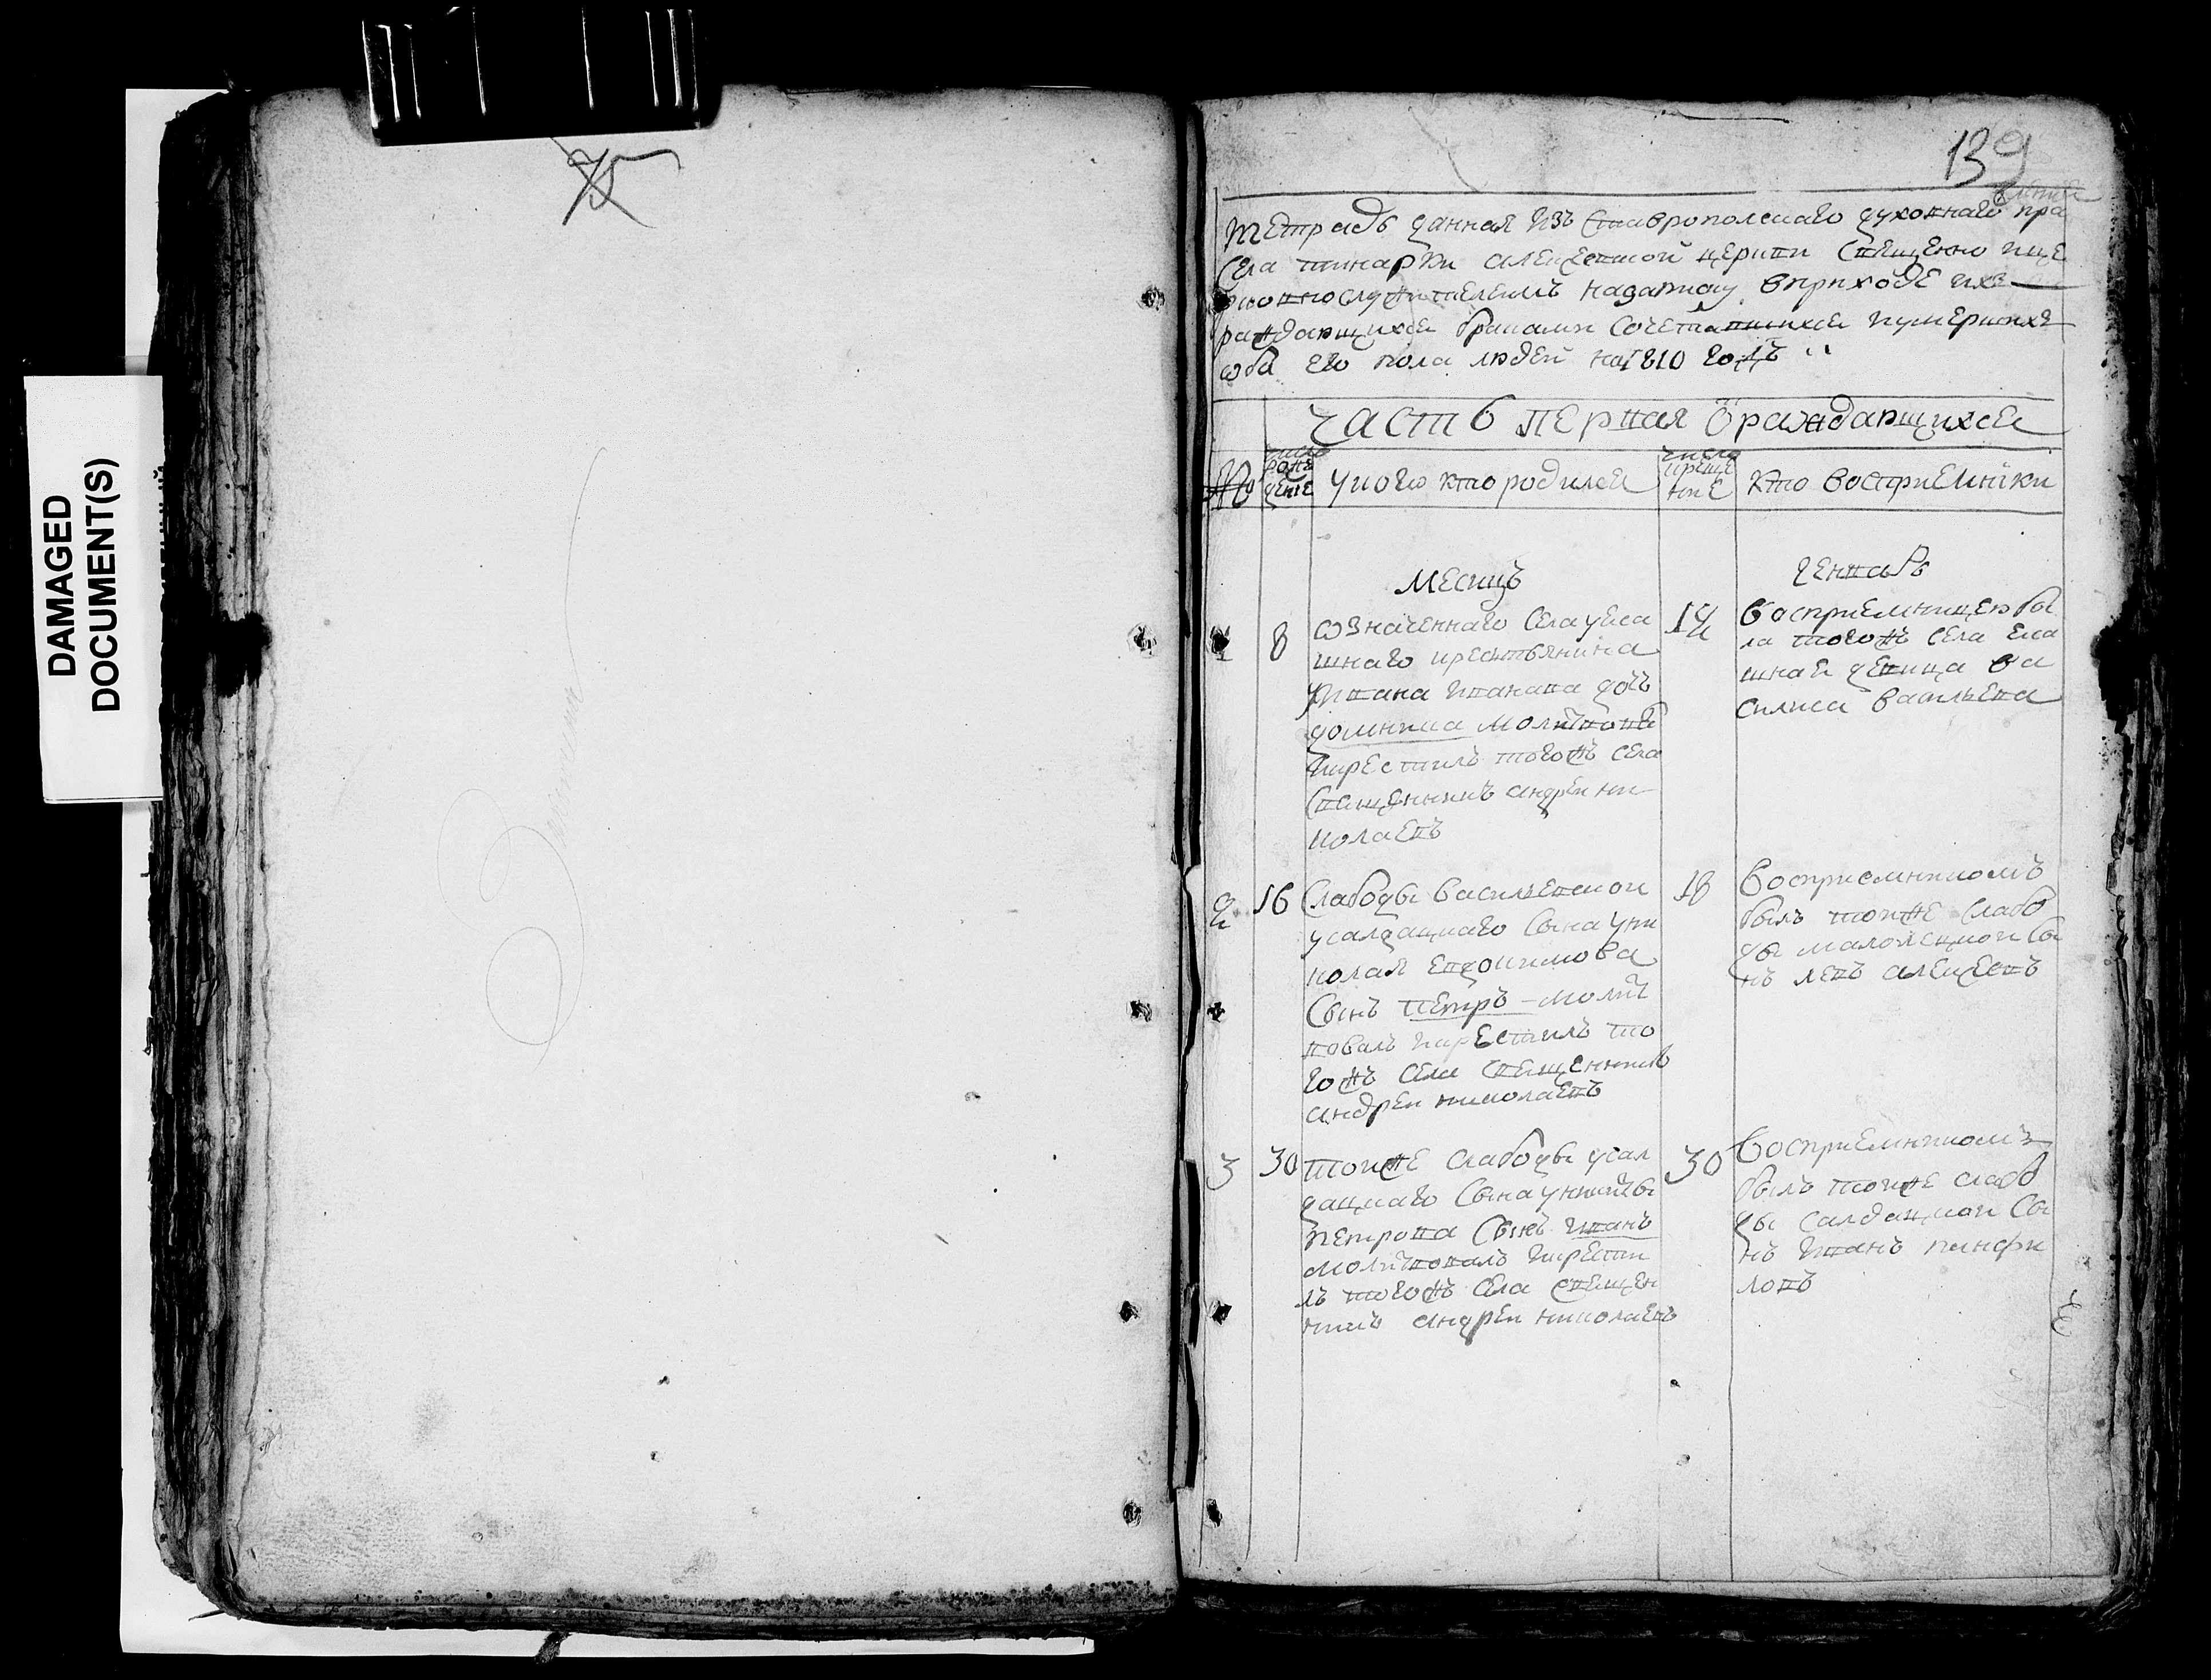 DAMAGED
DOCUMENT(S)
139
тетрадь данная изъ Ставрополскаго духовнаго пра
вления
Села алеѯевской церкви священно ице
рковнослужителемъ назаписку вприходе ихъ
раждающихся браками сочетавшихся иумершихъ
ѡбоего пола людей на 1810 годъ
часть первая ѡраждающихся
№
число
рож
дение
укого кто родился
число
креще
ние
кто восприемники
месяцъ
генварь
1
8
ѡзначеннаго села уяса
шнаго крестьянина
ивана дочь
домника молитвовалъ
икрестилъ тогожъ села
священникъ андреи ни
колаевъ
14
восприемницею бы
ла тогожъ села яса
шная девица ва
силиса васильева
2
16
слабоды васильевской
усалдацкаго сына уни
колая евдокимова
сынъ петръ молит
вовалъ икрестилъ то
гожъ села священникъ
андреи николаевъ
18
восприемникомъ
былъ тоиже слабо
ды малолецкои сы
нъ левъ алеѯеевъ
3
30
тоиже слабоды усал
дацкаго сына уникиты
петрова сынъ иванъ
молитвовалъ икрести
лъ тогожъ села священ
никъ андреи николаевъ
30
восприемникомъ
былъ тоиже слабо
ды салдацкои сы
нъ иванъ панфи
ловъ